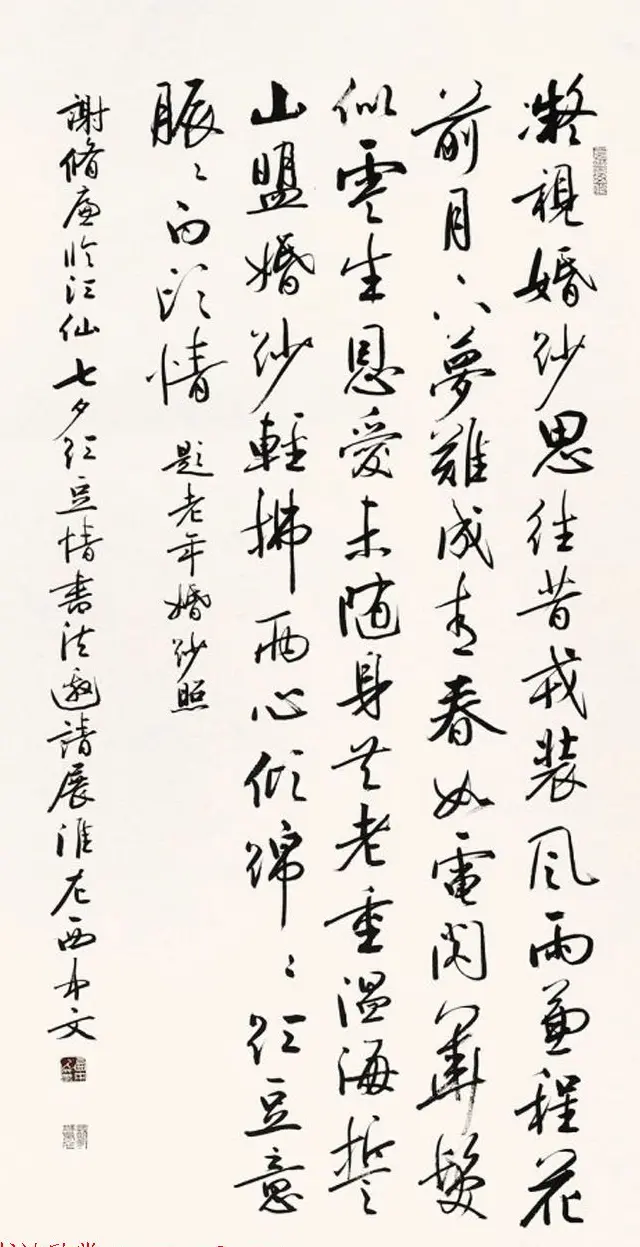 凝視婚紗思往昔戎裝風雨兼程花
前月下夢難成青春如電閃華髮
似雲生恩愛未隨身共老重溫海誓
山盟婚紗輕拂兩心傾綿〻紅豆意
脈〻白頭情 題老年婚紗照
謝脩廉臨江仙七夕紅豆情書法邀請展淮左西